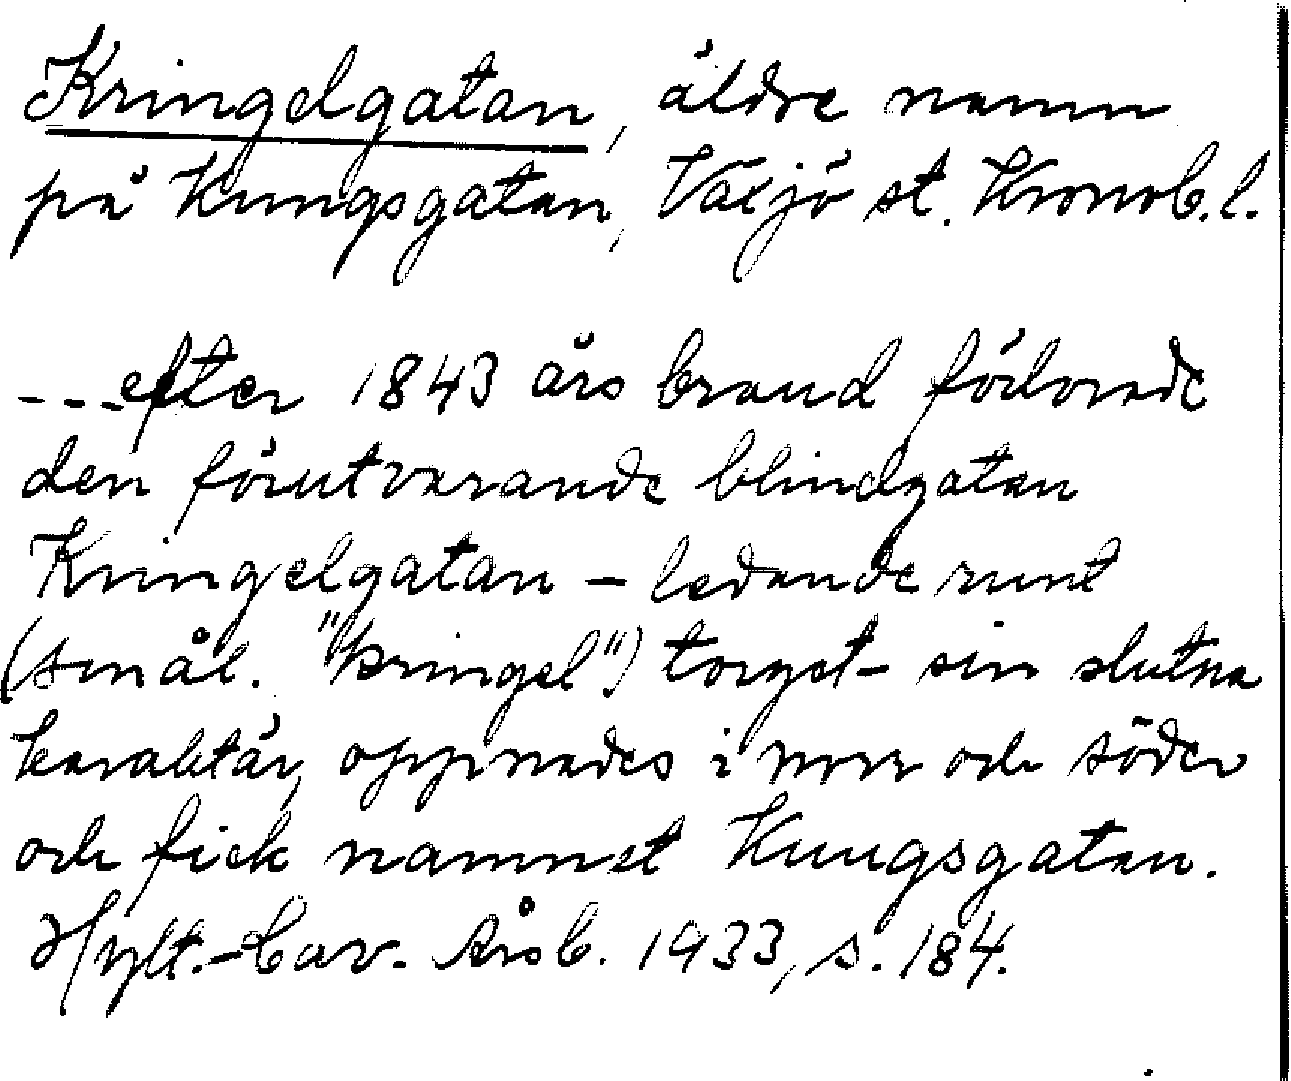 Kringelgatan, äldre namn
på Kungsgatan, Växjö st. Kronob.l.
---efter 1843 års brand förlorade
den förutvarande blindgatan
Kringelgatan – ledande runt
(smål. "kringel") torget – sin slutna
karaktär, öppnades i norr och söder
och fick namnet Kungsgatan.
Hylt.-Cav. Årsb. 1933, s. 184.